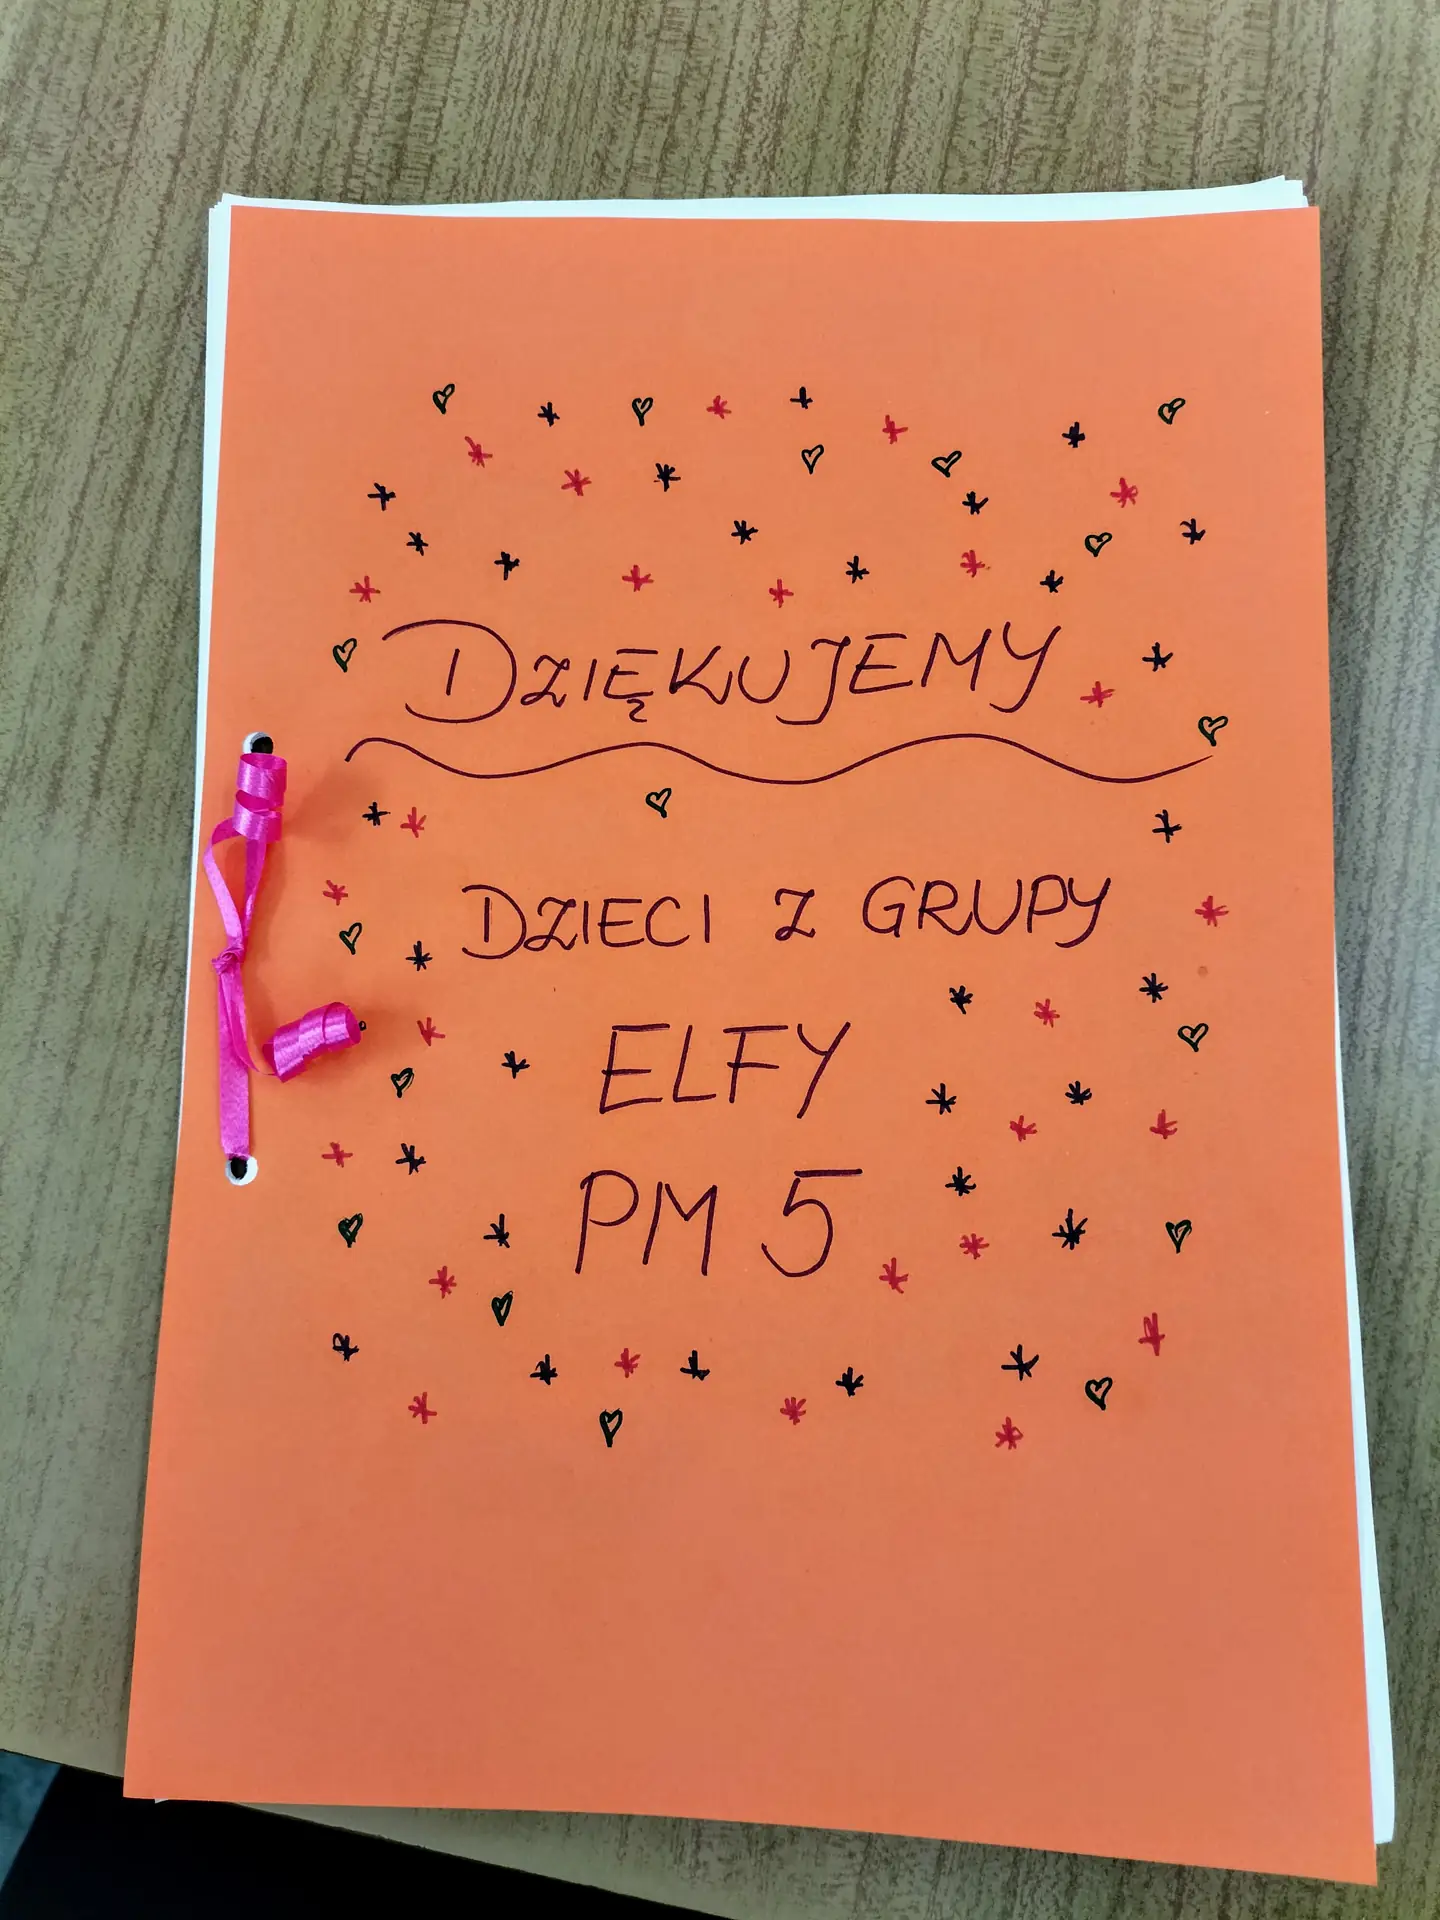 DZIĘKUJEMY
DZIECI Z GRUPY
ELFY
PM 5